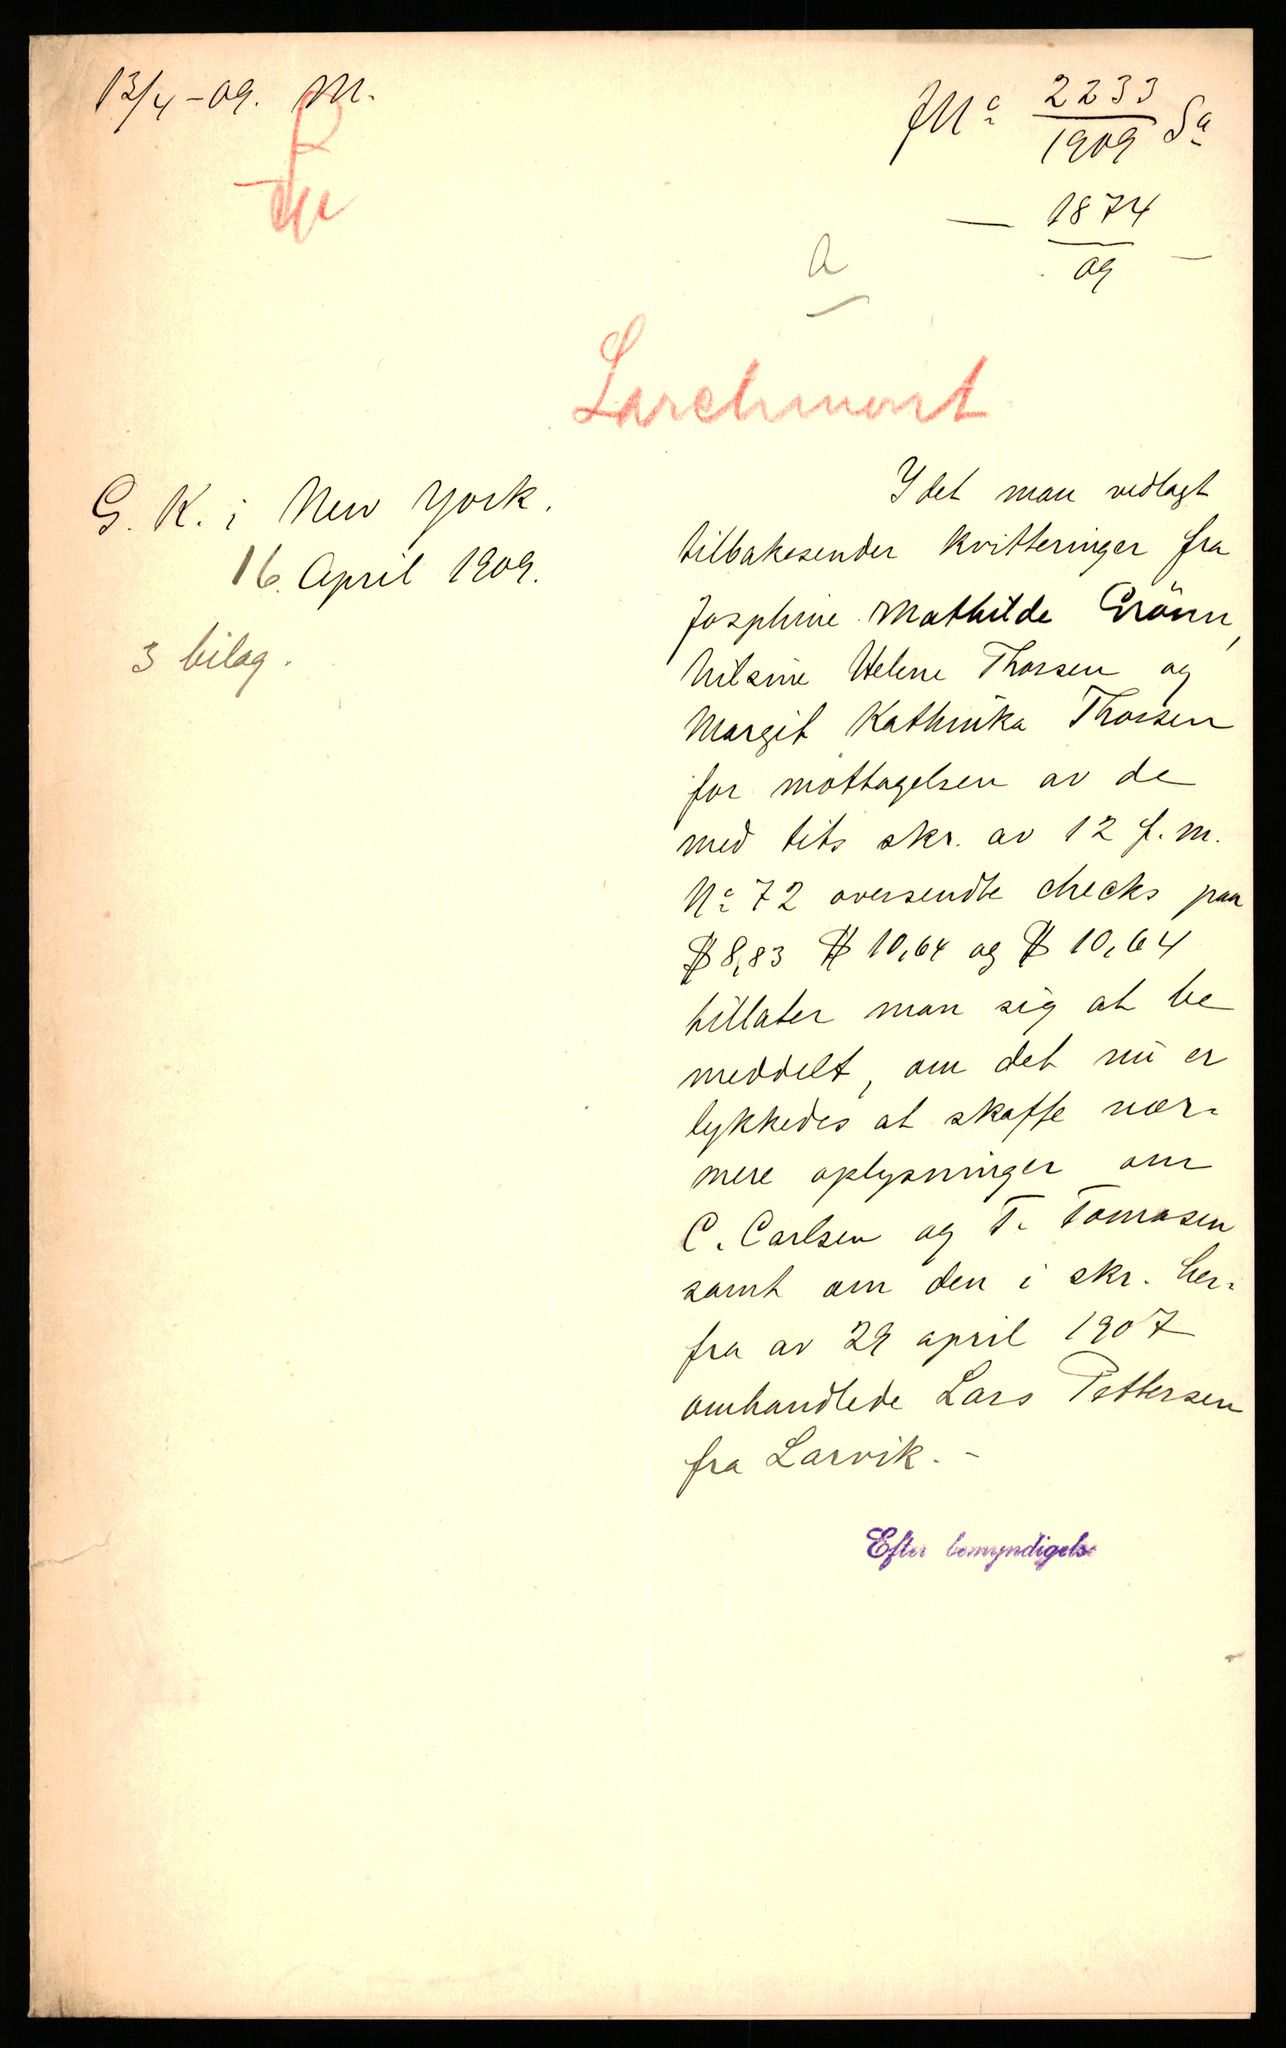 13/4 - 09. M.
JNo 2233/1909 Sa
— 1874/09 —
a
Larchmont
G. K. i New York.
16. April 1909.
3 bilag.
Idet man vedlagt
tilbakesender kvitteringer fra
Josphine Mathilde Grönn,
Nilsine Helene Thorsen og
Margit Kathinka Thorsen
for mottagelsen av de
med dets skr. av 12 f. m.
No 72 oversendte checks paa
$ 8,83 $ 10,64 og $ 10,64
tillater man sig at be
meddelt, om det nu er
lykkedes at skaffe nær-
mere oplysninger om
C. Carlsen og T. Tomasen
samt om den i skr. her-
fra av 29 april 1907
omhandlede Lars Pettersen
fra Larvik. -
Efter bemyndigelse